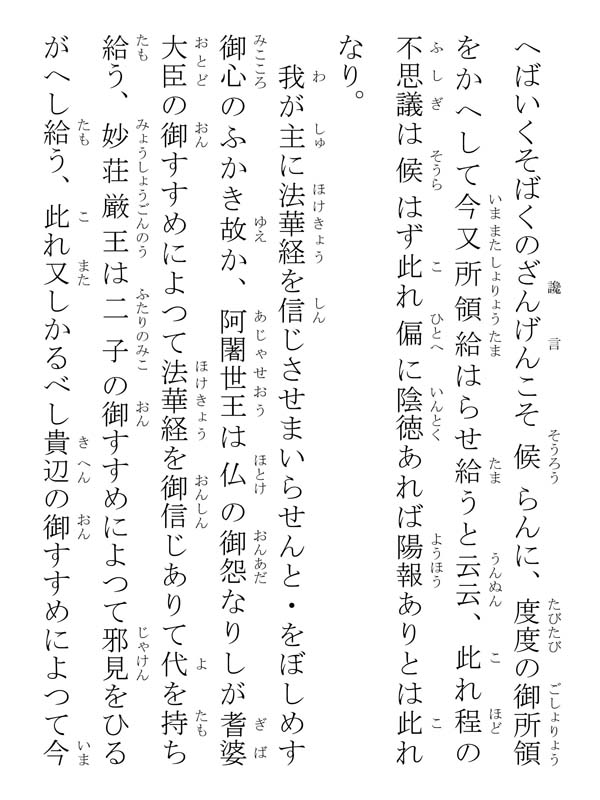 へばいくそばくのざんげんこそ候らんに、度度の御所領
をかへして今又所領給はらせ給うと云云、此れ程の
不思議は候はず此れ偏に陰徳あれば陽報ありとは此れ
なり。
我が主に法華経を信じさせまいらせんと・をぼしめす
御心のふかき故か、阿闍世王は仏の御怨なりしが耆婆
大臣の御すすめによつて法華経を御信じありて代を持ち
給う、妙荘厳王は二子の御すすめによつて邪見をひる
がへし給う、此れ又しかるべし貴辺の御すすめによつて今